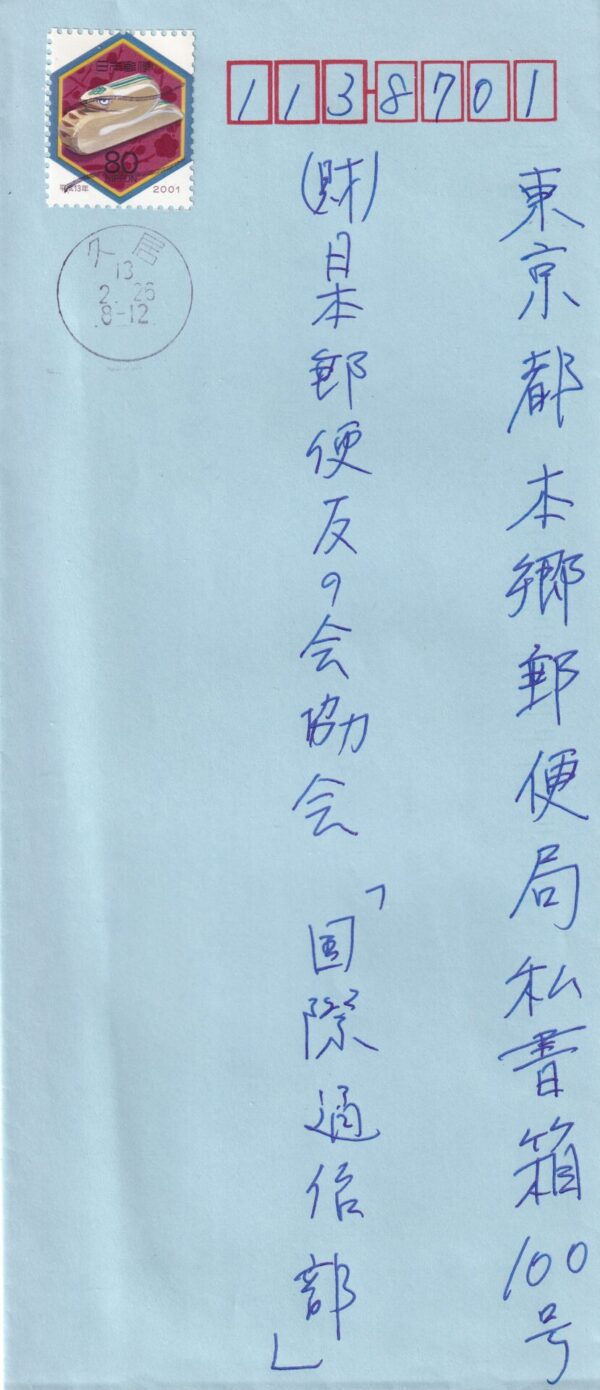 日本郵便
80
NIPPON
平成13年 2001
久居
13
2.26
8-12
113-8701
東京都本郷郵便局私書箱100号
(財)日本郵便友の会協会「国際通信部」